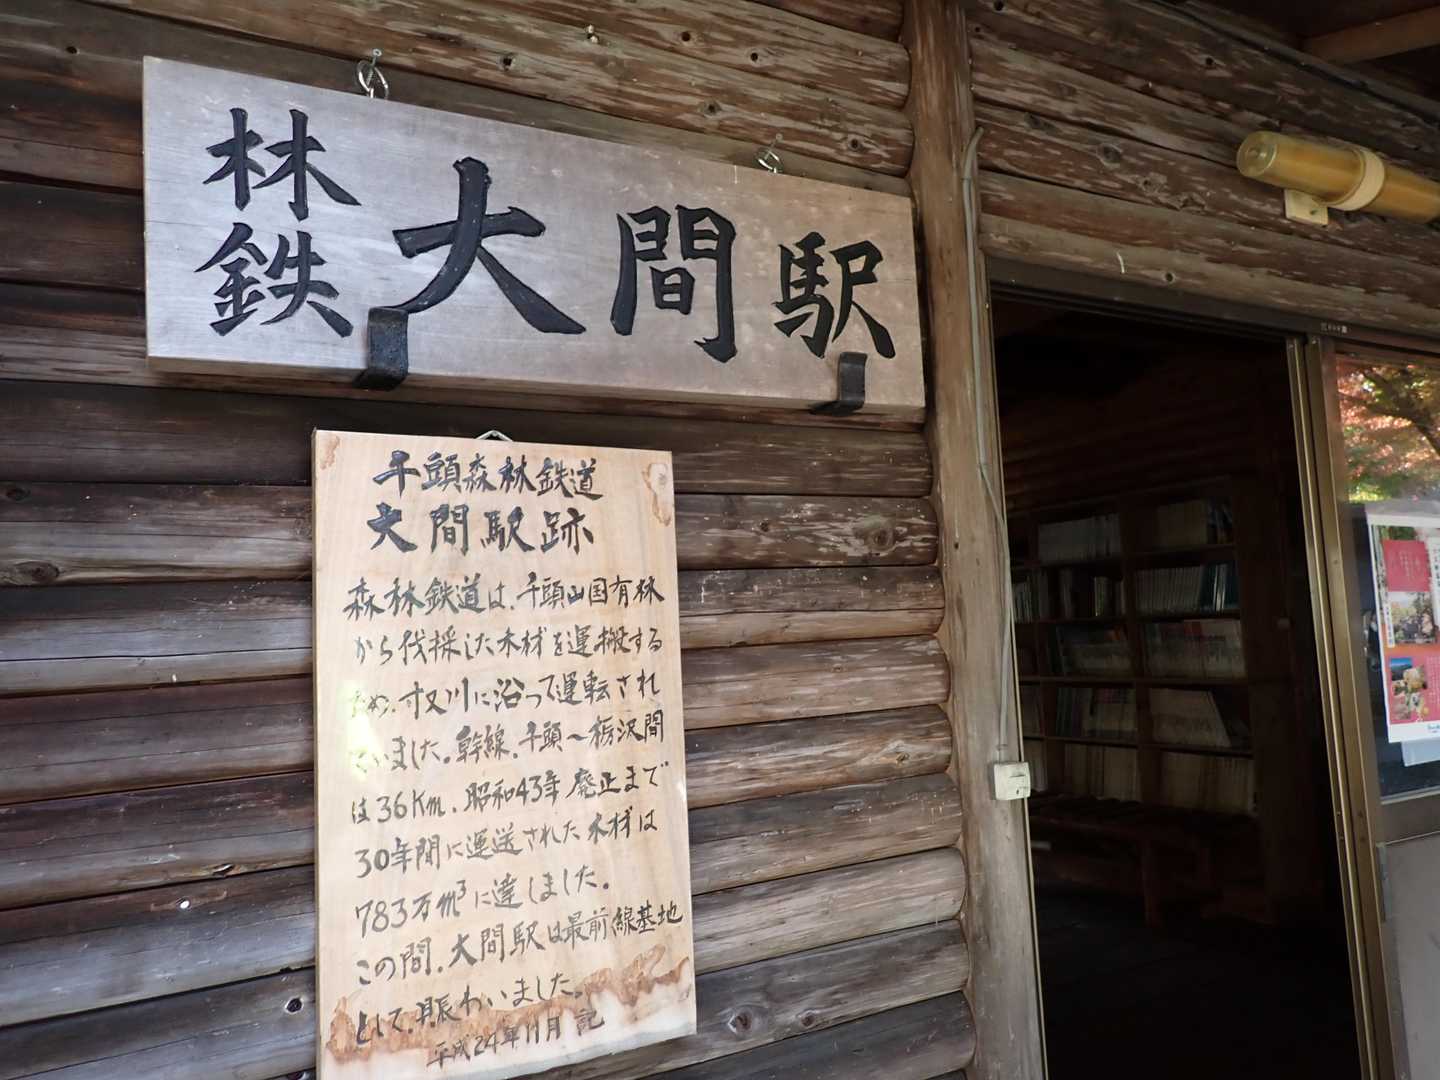 林鉄 大間駅
千頭森林鉄道
大間駅跡
森林鉄道は、千頭山国有林
から伐採した木材を運搬する
ため、寸又川に沿って運転され
ていました。幹線、千頭~栃沢間
は36Km、昭和43年廃止まで
30年間に運送された木材は
783万m³に達しました。
この間、大間駅は最前線基地
として、賑わいました。
平成24年11月 記